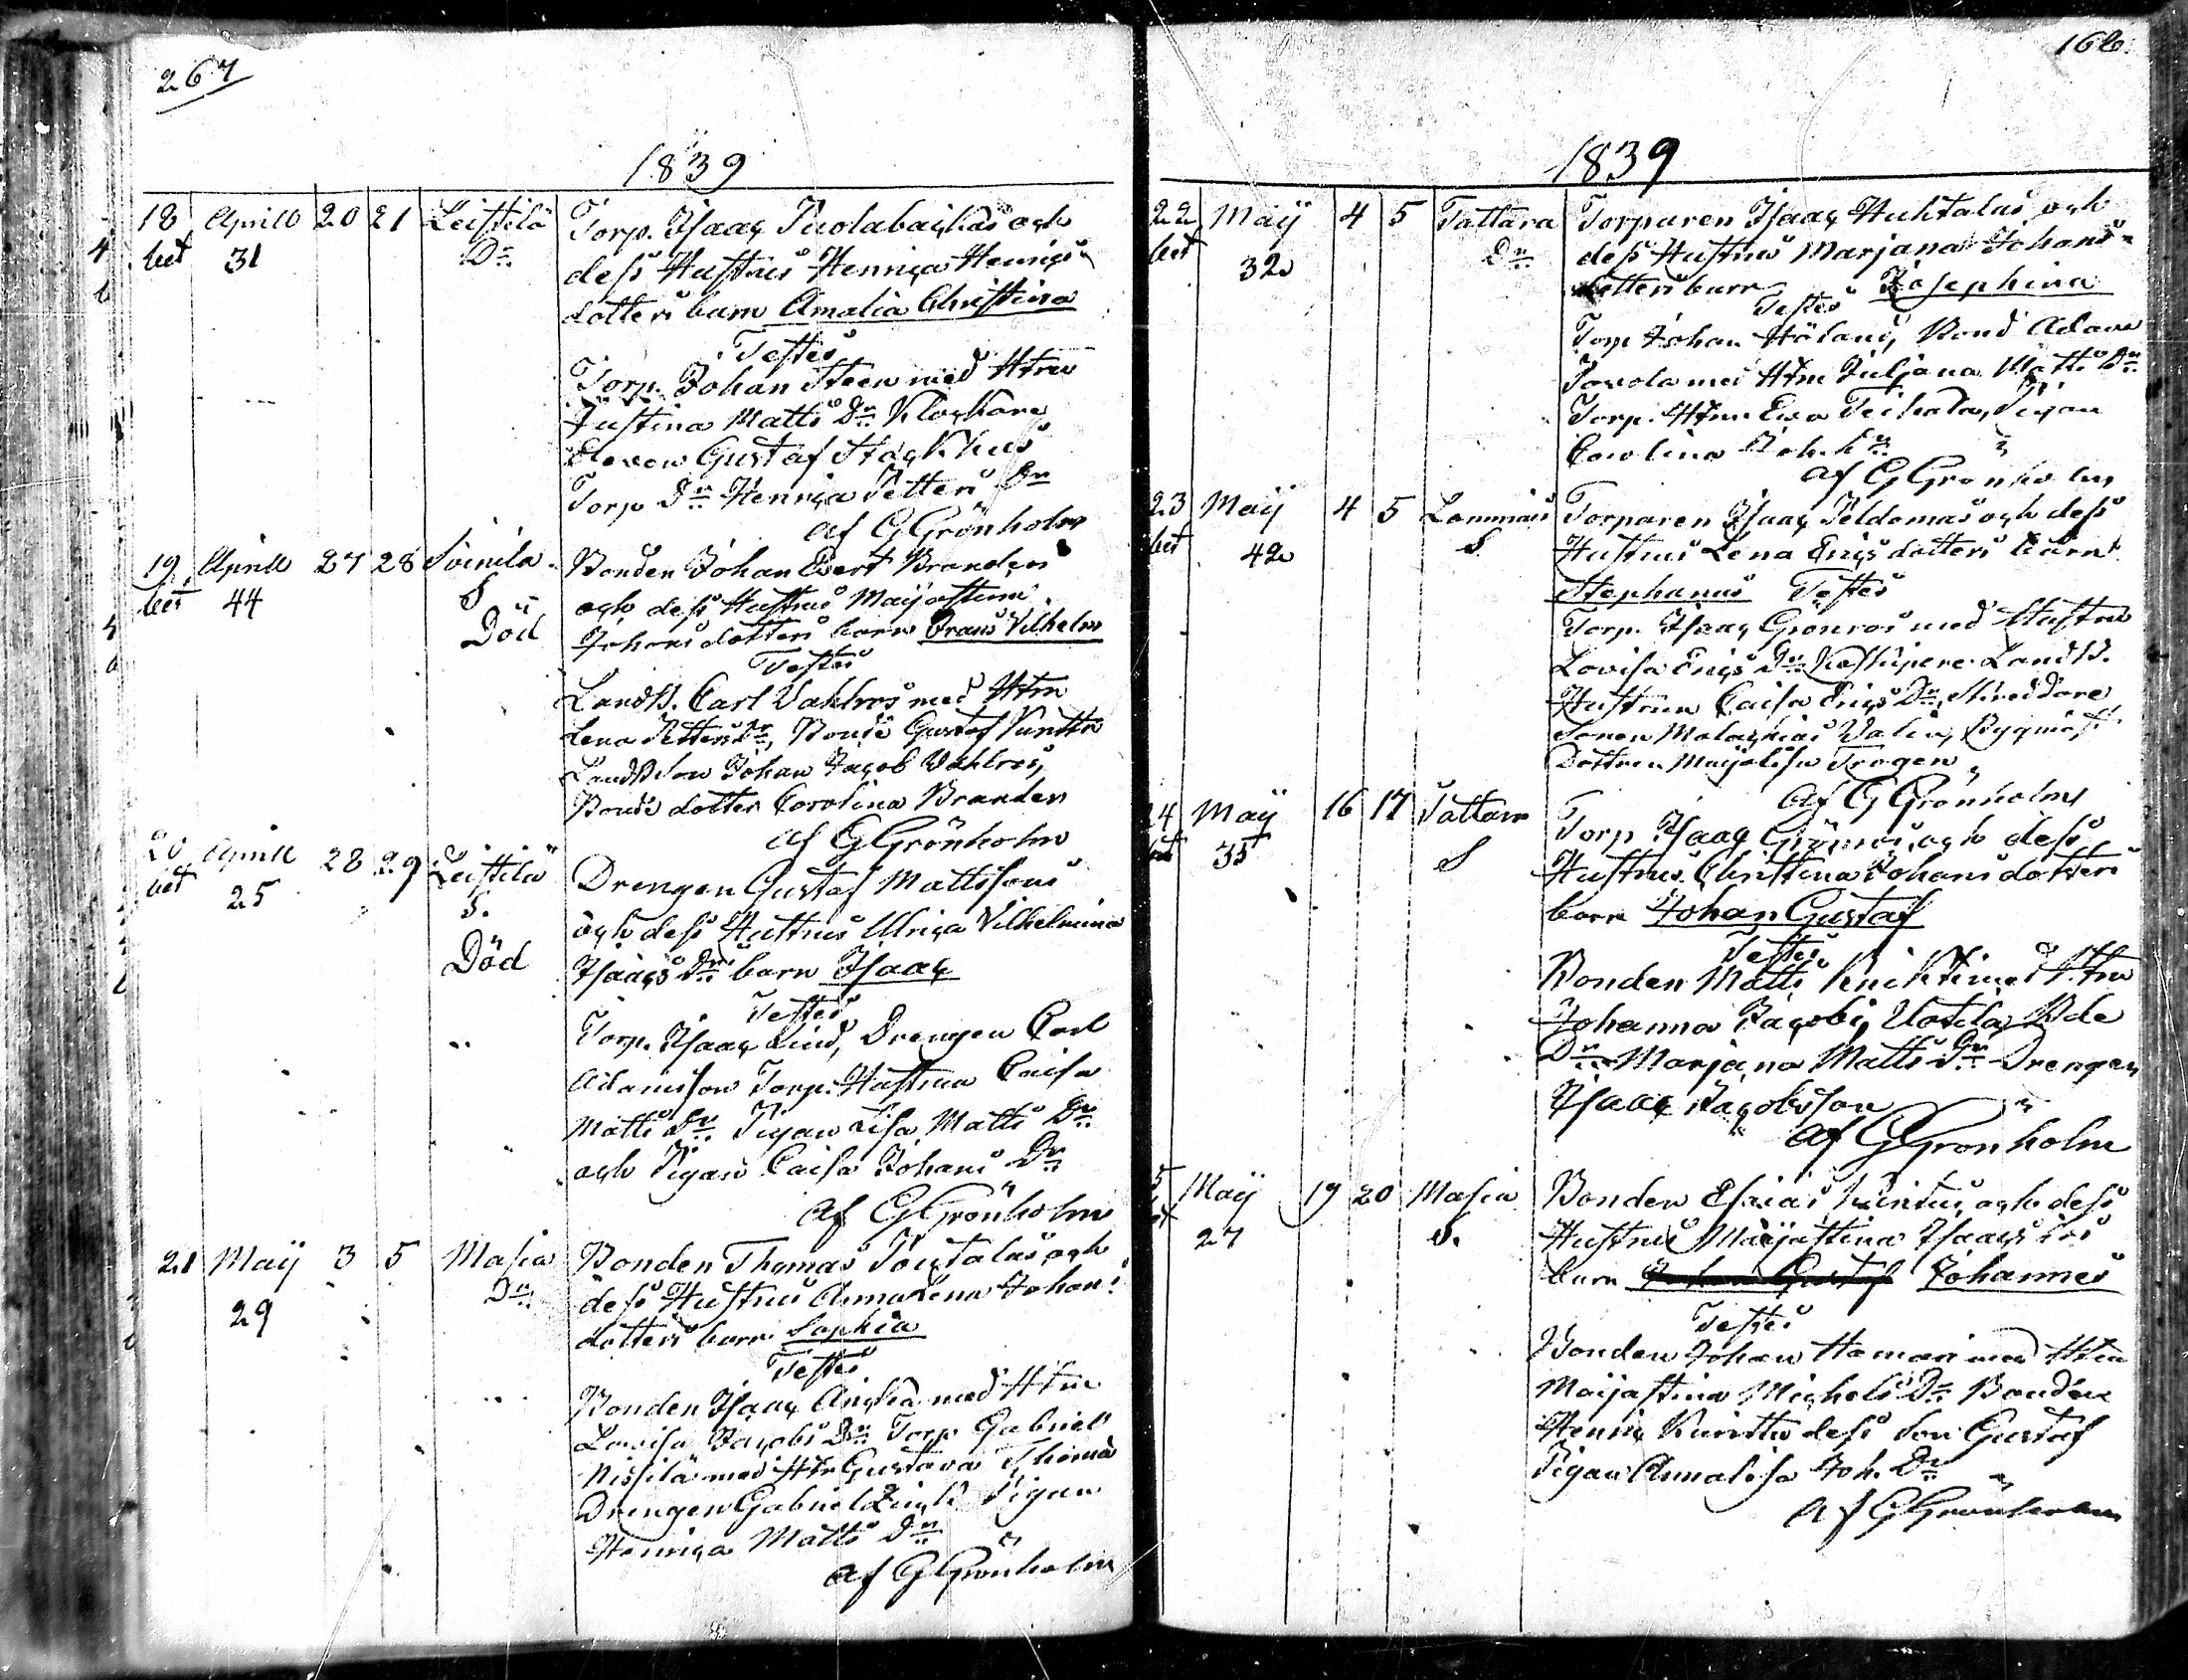 267
1839
18 Aprill 20 21 Leistilä Torp. Isaac Tuolabackas och
bet 31 Dr dess Hustrus Henrica Henrics
dotters barn Amalia Christina
Testes
Torp. Johan Steen med Hfru
Justina Matts Dr Klockare
Eleven Gustaf Stackhus
Torp Dr Henrica Petters Dr
af G Grönholm
19 Aprill 27 28 Soinila Bonden Johan Evert Branders
bet 44 S och dess Hustrus Maijastina
Död Johansdotters barn Frans Vilhelm
Testes
Landb. Carl Vahlros med Hfru
Lena Petters Dr, Bonde Gustaf Kunttu
Landb Son Johan Jacob Vahlros,
Bonde dotter Carolina Brander
af G Grönholm
20 Aprill 28 29 Leistilä Drengen Gustaf Mattssons
bet 25 S. och dess Hustrus Ulrica Vilhelmina
Död Isaacs Dr barn Isaac
Testes
Torp. Isaac Lind, Drengen Carl
Adamsson Torp. Hustrun Caisa
Matts Dr Pigan Lisa Matts Dr
och Pigan Caisa Johans Dr
af G Grönholm
21 Maij 3 5 Masia Bonden Thomas och
29 Dr dess Hustrus Annalena Johans
dotters barn Sophia
Testes
Bonden Isaac med Hfru
Lovisa Jacobs Dr Torp Gabriel
Nissilä med Hfr Gustava Thomas
Drengen Gabriel Pigan
Henrica Matts Dr
af G Grönholm
166
1839
22 Maij 4 5 Tattara Torparen Isaac Huhtalas och
bet 32 Dr dess Hustrus Marjana Johans
dotters barn Josephina
Testes
Torp Johan Bond Adam
Jovola med Hfru Juljana Matts Dr
Torp. Hfru Eva Pigan
Carolina Joh. Dr
af G Grönholm
23 Maij 4 5 Lammais Torparen Isaac Peldomas och dess
bet 42 S Hustrus Lena Erics dotters barn
Stephanus Testes
Torp. Isaac Grönros med Hustru
Lovisa Erics Dr Landb.
Hustrun Caisa Erics Dr, Skreddare
Sonen Malachias Valin, Bygmäst.
Dottren Maijalisa Trogen
af G Grönholm
24 Maij 16 17 Tattara Torp Isaac Grönros och dess
bet 35 S Hustrus Christina Johansdotters
barn Johan Gustaf
Testes
Bonden Matts med Hfru
Johanna Jacobs, Uotila Bde
Dr Marjana Matts Dr Drengen
Isaac Jacobsson
af G Grönholm
5 Maij 19 20 Masia Bonden Esaias och dess
27 S. Hustrus Maijastina Isaacs
barn Johannes
Testes
Bonden Johan Hamari med Hfru
Maijastina Michels Dr Bonden
Henric Kunttu dess Son Gustaf
Pigan Annalisa Joh. Dr
af G Grönholm